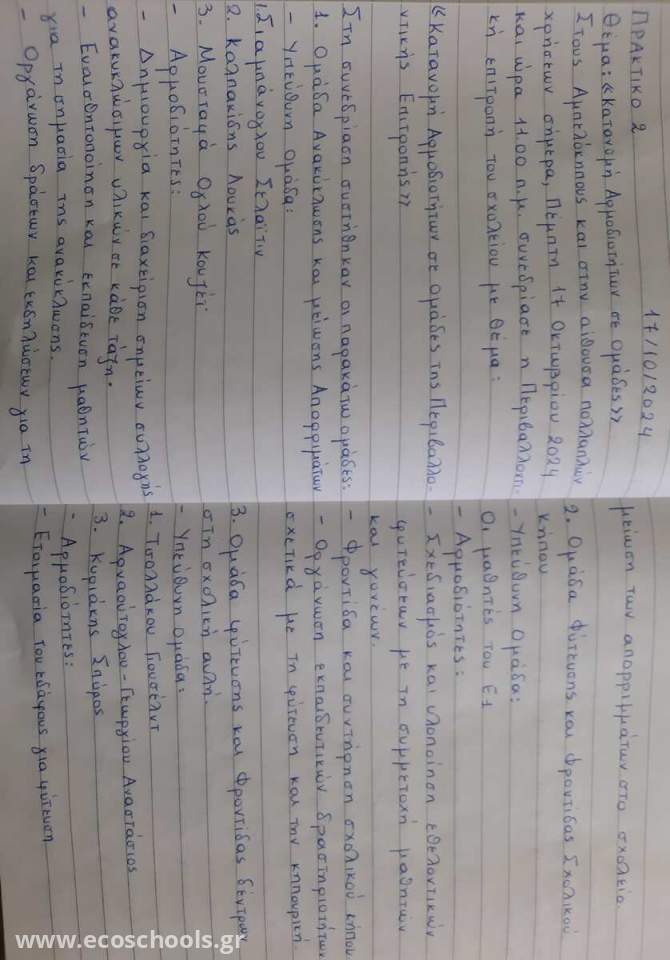 17/10/2024
ΠΡΑΚΤΙΚΟ 2
Θέμα: «Κατανομή Αρμοδιοτήτων σε Ομάδες»
Στους Αμπελόκηπους και στην αίθουσα πολλαπλών
χρήσεων σήμερα, Πέμπτη 17 Οκτωβρίου 2024
και ώρα 11.00 π.μ. συνεδρίασε η Περιβαλλοντι-
κή επιτροπή του σχολείου με θέμα:
«Κατανομή Αρμοδιοτήτων σε Ομάδες της Περιβαλλο-
ντικής Επιτροπής»
Στη συνεδρίαση συστήθηκαν οι παρακάτω ομάδες:
1. Ομάδα Ανακύκλωσης και μείωσης Απορριμάτων
- Υπεύθυνη Ομάδα:
1. Σιαμπάνογλου Σελαϊτιν
2. Καλπακίδης Λουκάς
3. Μουσταφά Ογλού Κουζέι
- Αρμοδιότητες:
- Δημιουργία και διαχείριση σημείων συλλογής
ανακυκλώσιμων υλικών σε κάθε τάξη.
- Ευαισθητοποίηση και εκπαίδευση μαθητών
για τη σημασία της ανακύκλωσης.
- Οργάνωση δράσεων και εκδηλώσεων για τη
μείωση των απορριμμάτων στο σχολείο.
2. Ομάδα Φύτευσης και Φροντίδας Σχολικού
Κήπου
- Υπεύθυνη Ομάδα:
Οι μαθητές του Ε1
- Αρμοδιότητες:
- Σχεδιασμός και υλοποίηση εθελοντικών
φυτεύσεων με τη συμμετοχή μαθητών
και γονέων.
- Φροντίδα και συντήρηση σχολικού κήπου
- Οργάνωση εκπαιδευτικών δραστηριοτήτων
σχετικά με τη φύτευση και την κηπουρική.
3. Ομάδα φύτευσης και Φροντίδας δέντρων
στη σχολική αυλή.
- Υπεύθυνη Ομάδα:
1. Τσολλάκου Γιουσέλντ
2. Αρναούτογλου - Γεωργίου Αναστάσιος
3. Κυριάκης Σπύρος
- Αρμοδιότητες:
- Ετοιμασία του εδάφους για φύτευση
www.ecoschools.gr